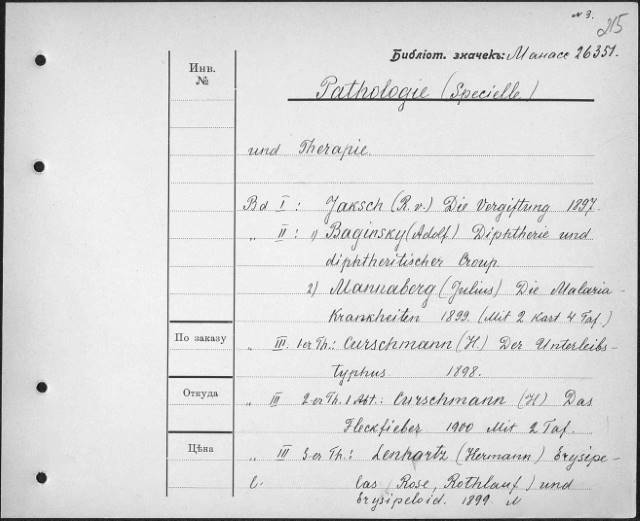 № 3.
215
Библіот. значекъ: Манасс 26351.
Инв. №
Pathologie (Specielle)
und Therapie.
Bd I: Jaksch (R. v.) Die Vergiftung 1897.
„ II: 1) Baginsky (Adolf) Diphtherie und
diphtheritischer Croup
2) Mannaberg (Julius) Die Malaria-
Krankheiten 1899. (Mit 2 Kart 4 Taf.)
По заказу
„ III. 1er Th.: Curschmann (H) Der Unterleibs-
typhus 1898.
Откуда
„ III 2-er Th. 1 Abt.: Curschmann (H) Das
Fleckfieber 1900 Mit 2 Taf.
Цѣна
„ III 3-er Th.: Lenhartz (Hermann) Erysipe-
las (Rose, Rothlauf) und
Erysipeloid. 1899.